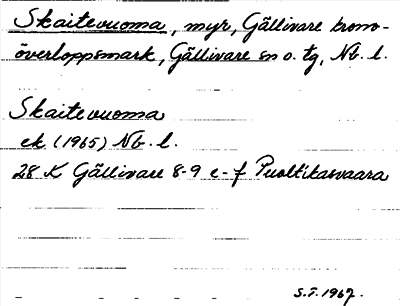 Skaitevuoma, myr, Gällivare krono-
överloppsmark, Gällivare sn o. tg, Nb. l.
Skaitevuoma
ek. (1965) Nb. l.
28 K Gällivare 8-9 e-f Puoltikasvaara
S.T. 1967.